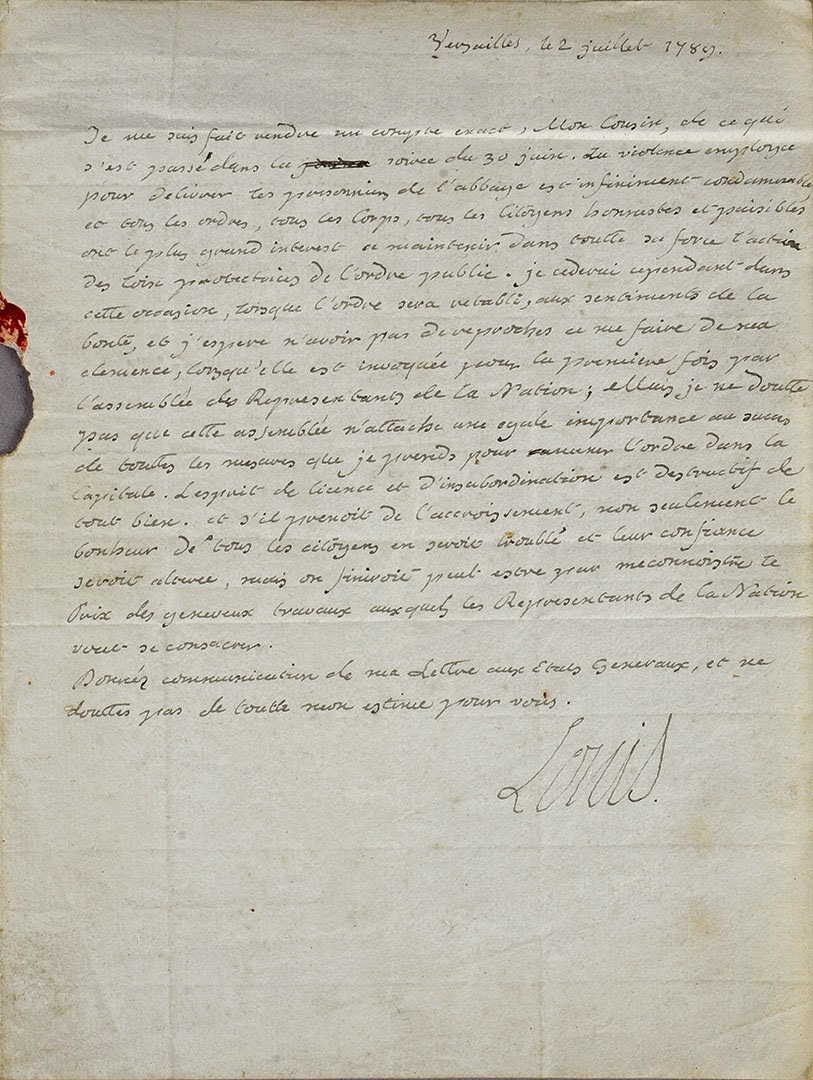 Versailles, le 2 juillet 1789.
Je me suis fait rendre un compte exact, Mon Cousin, de ce qui
s'est passé dans la soirée du 30 juin. La violence employée
pour délivrer les prisonniers de l'abbaye est infiniment condamnable
et tous les ordres, tous les Corps, tous les Citoyens honnestes et paisibles
ont le plus grand interest a maintenir dans toutte sa force l'action
des loix protectrices de l'ordre public. je cederai cependant dans
cette occasion, lorsque l'ordre sera retabli, aux sentiments de la
bonté, et j'espere n'avoir pas de reproches a me faire de ma
clemence, lorsqu'elle est invoquée pour la premiere fois par
l'assemblée des Representants de la Nation; Mais je ne doutte
pas que cette assemblée n'attache une egale importance au succes
de touttes les mesures que je prends pour ramener l'ordre dans la
Capitale. L'esprit de licence et d'insubordination est destructif de
tout bien. et s'il prenoit de l'accroissement, non seulement le
bonheur de tous les citoyens en seroit troublé et leur confiance
seroit alterée, mais on finiroit peut estre par meconnoistre le
Prix des genereux travaux auxquels les Representants de la Nation
vont se consacrer.
Donnéz communication de ma Lettre aux Etats Generaux, et ne
douttes pas de toutte mon estime pour vous.
Louis.